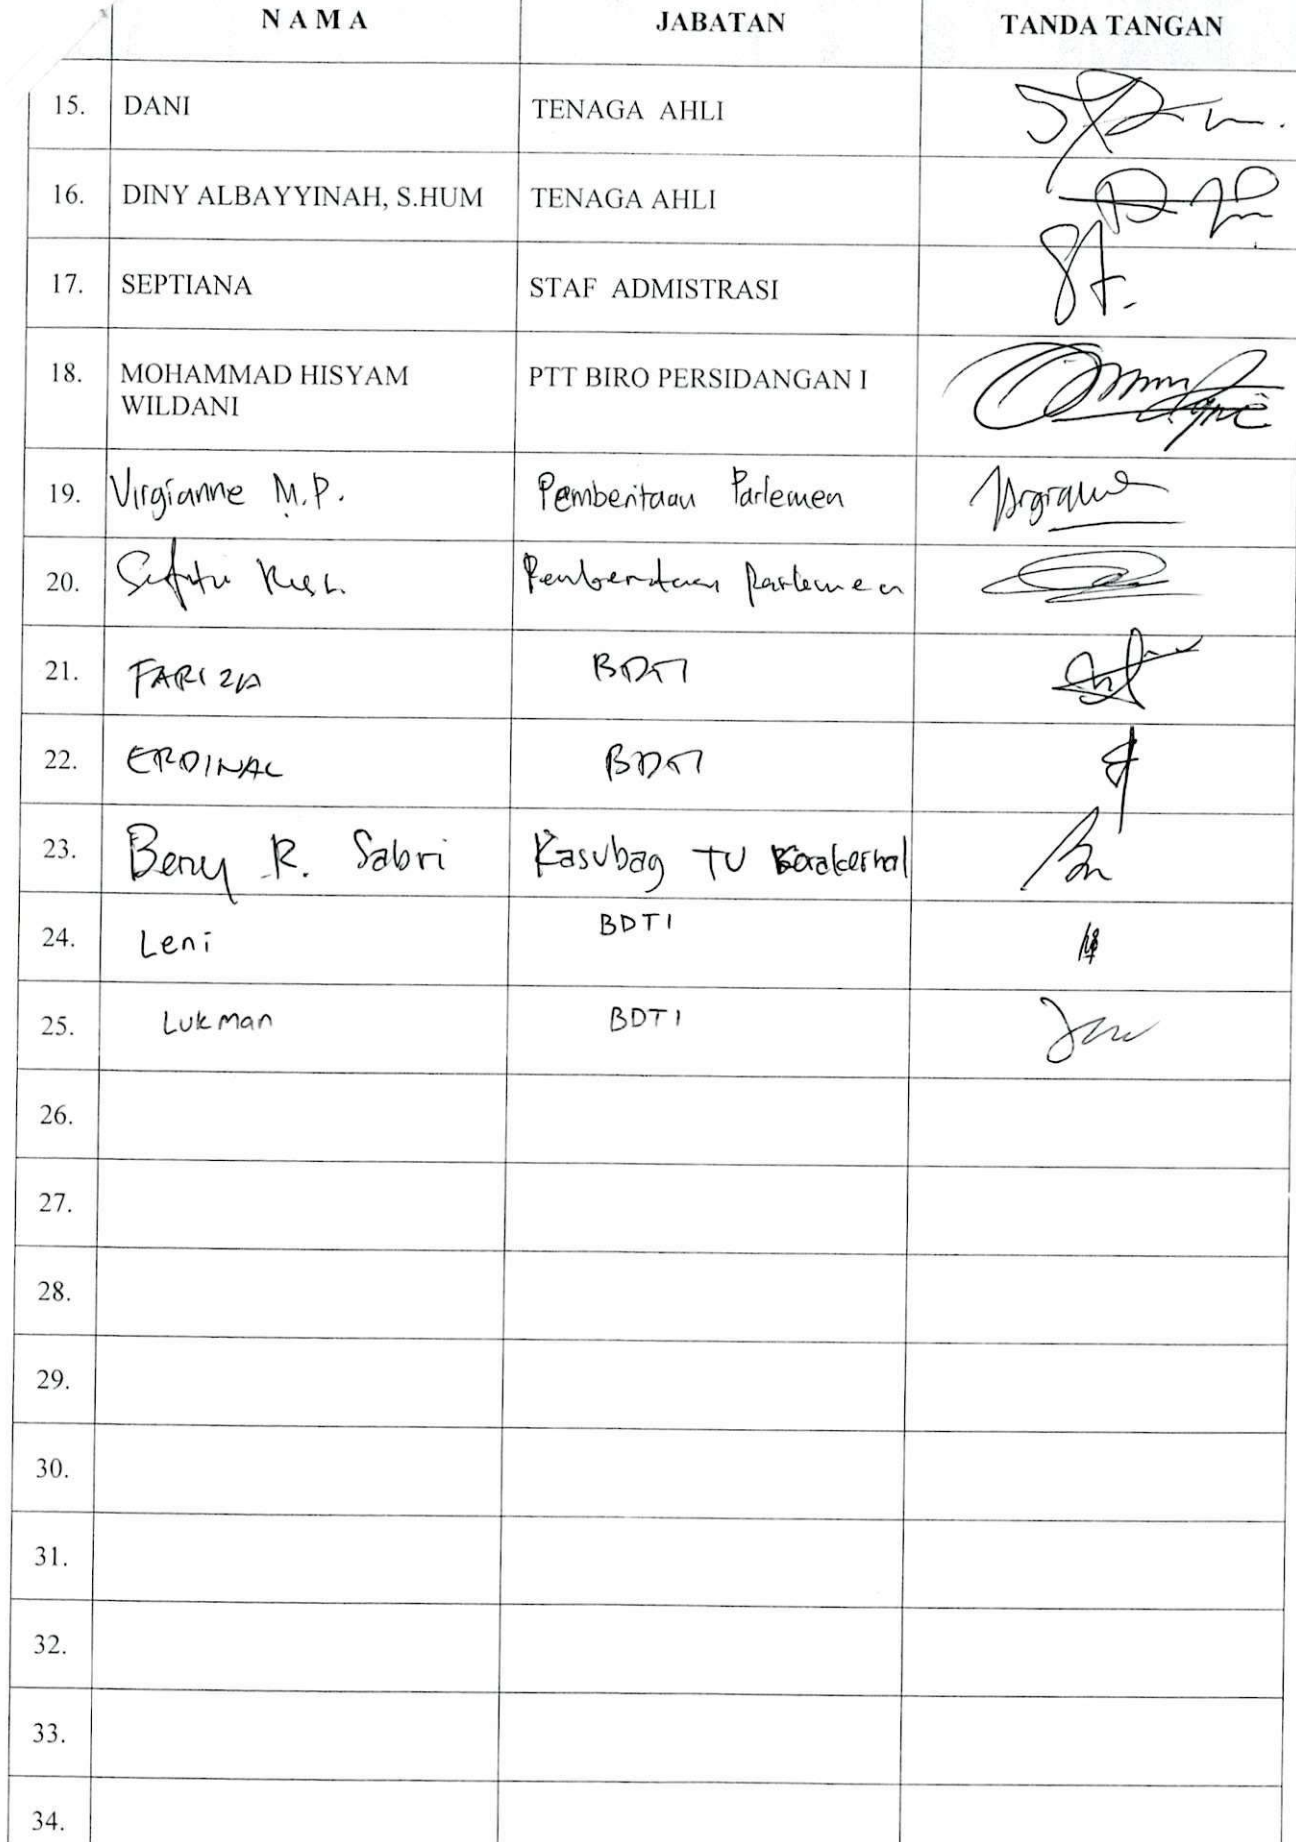 N A M A JABATAN TANDA TANGAN
15. DANI TENAGA AHLI
16. DINY ALBAYYINAH, S.HUM TENAGA AHLI
17. SEPTIANA STAF ADMISTRASI
18. MOHAMMAD HISYAM PTT BIRO PERSIDANGAN I
WILDANI
19. Virgianne M.P. Pemberitaan Parlemen
20. Pemberitaan Parlemen
21. FARIZA BDTI
22. ERDINAL BDTI
23. Beny R. Sabri Kasubag TU
24. Leni BDTI
25. Lukman BDTI
26.
27.
28.
29.
30.
31.
32.
33.
34.